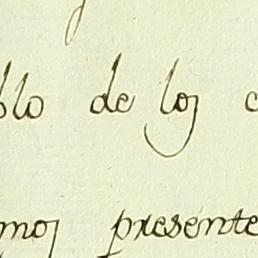 blo de los
mos presente